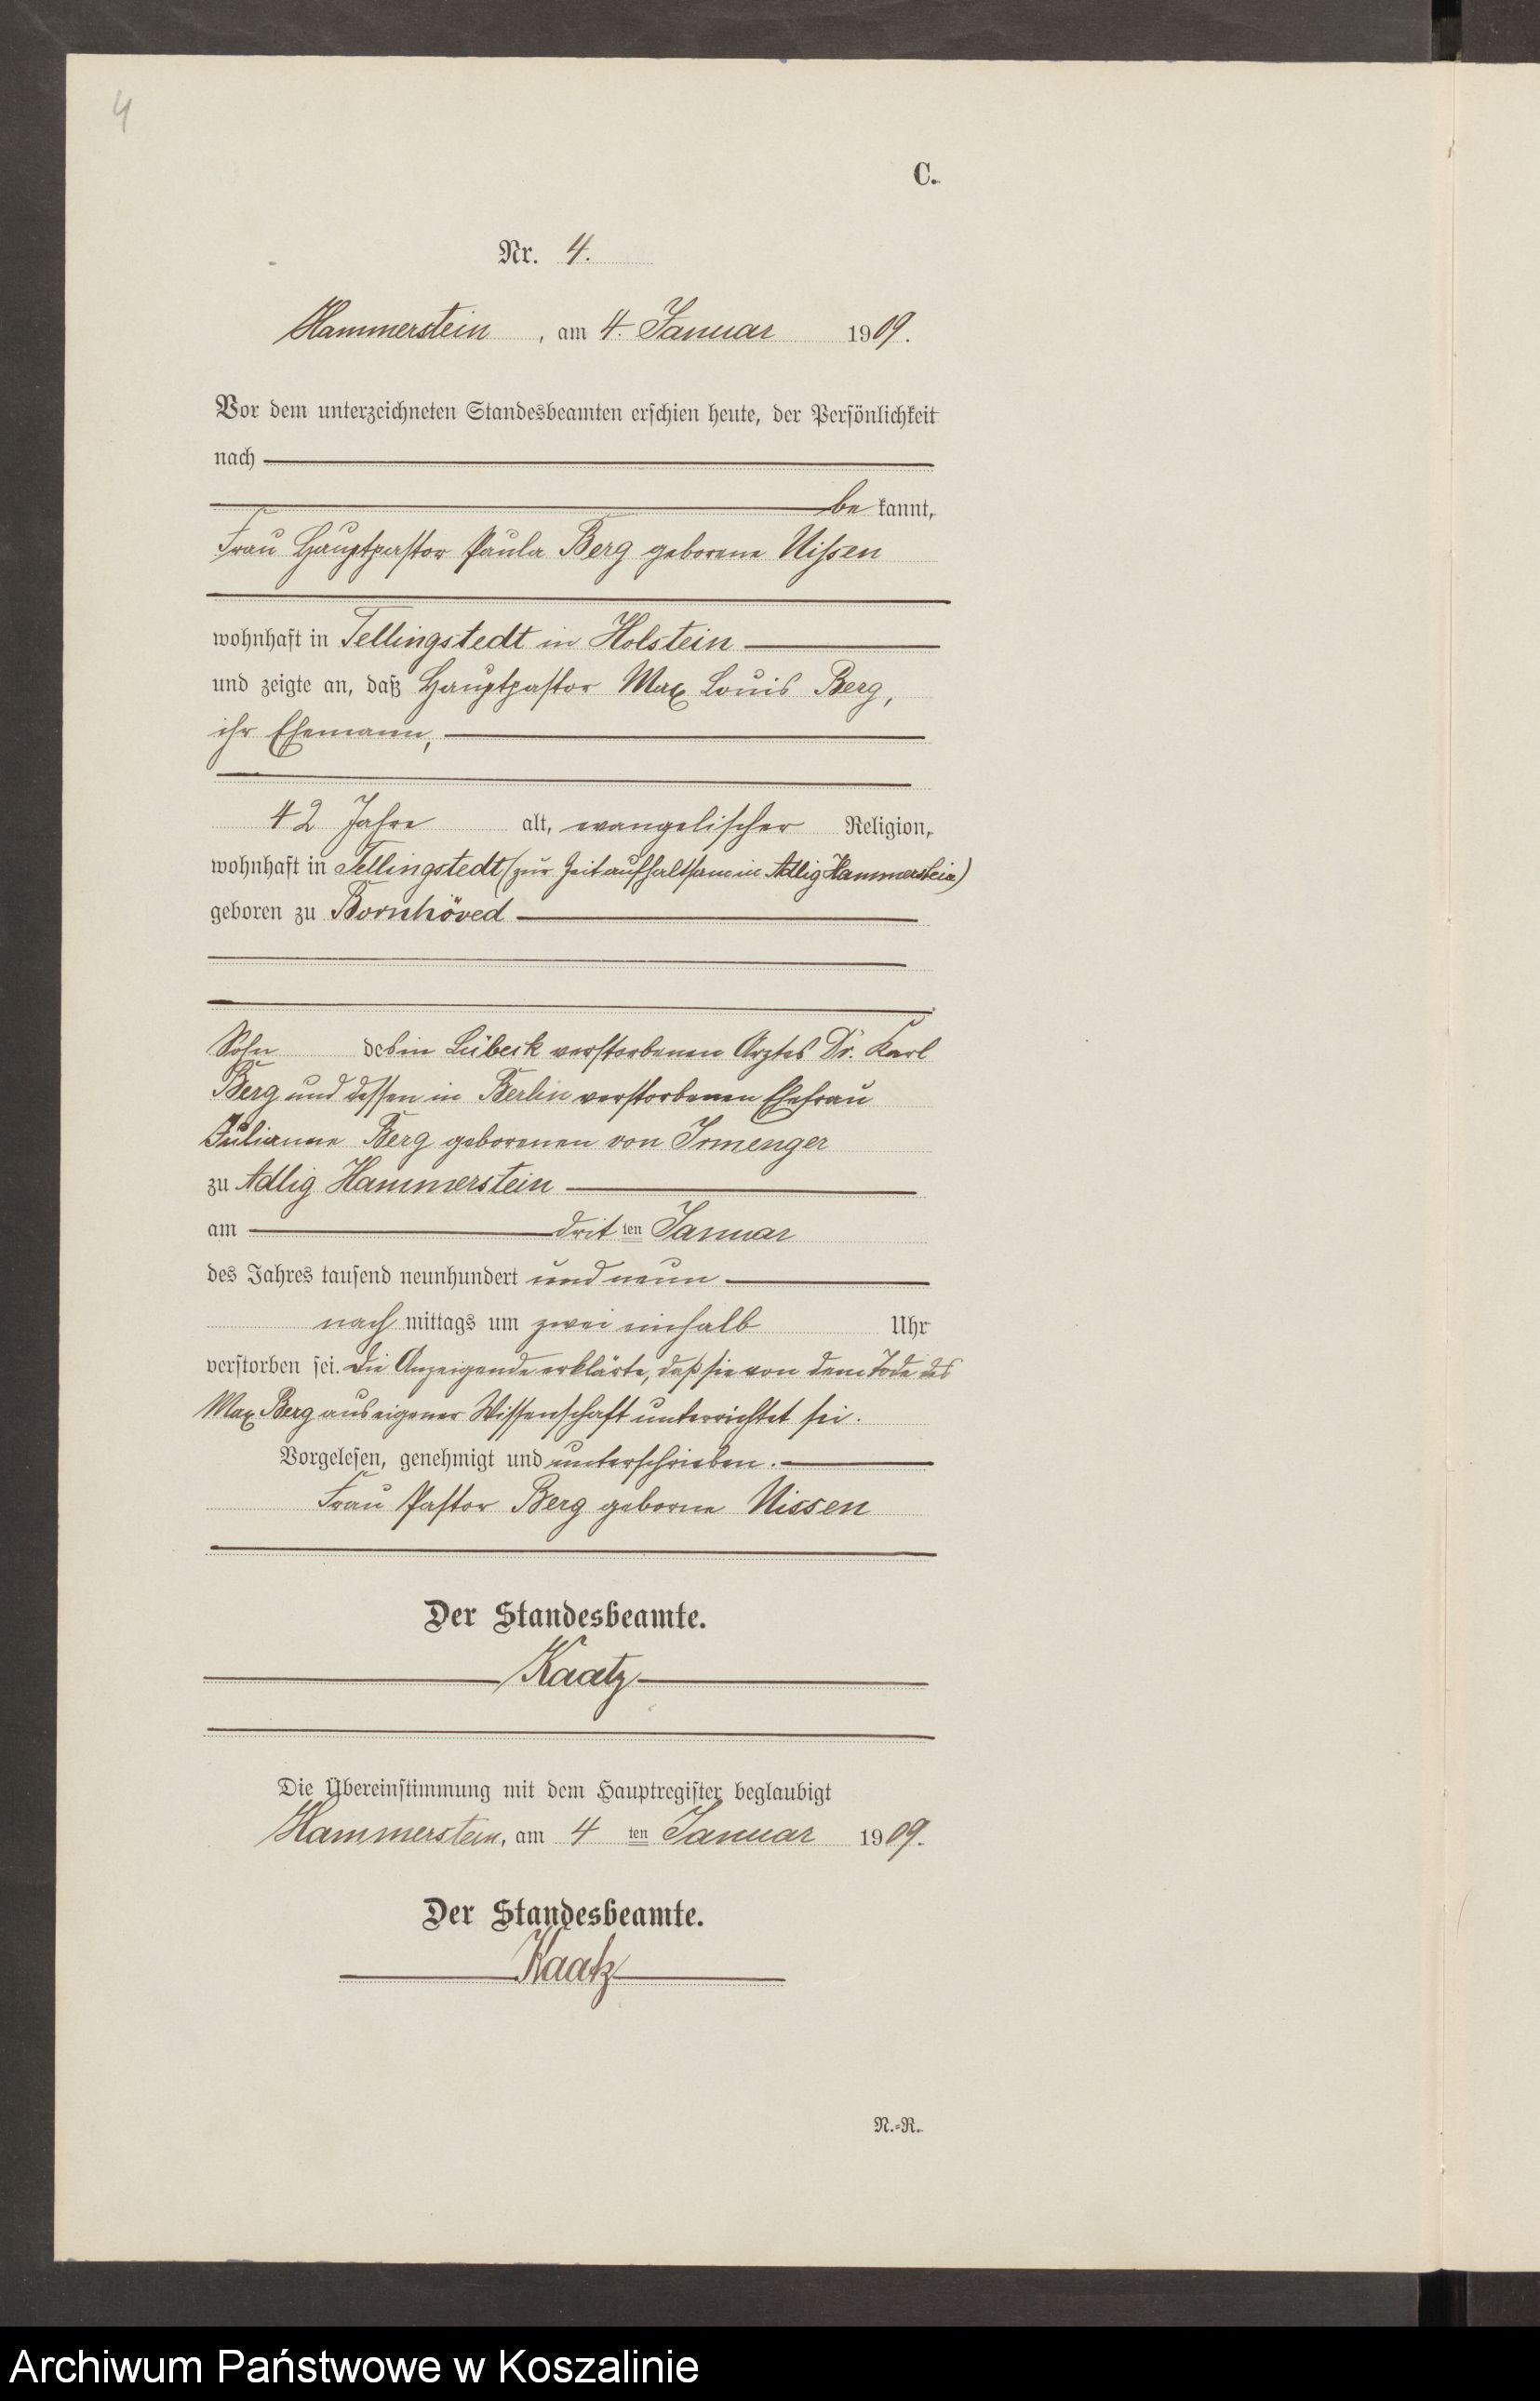 4
C.
Nr. 4.
Hammerstein, am 4. Januar 1909.
Vor dem unterzeichneten Standesbeamten erschien heute, der Persönlichkeit
nach
be kannt,
Frau Hauptpastor Paula Berg geborene Nissen
wohnhaft in Tellingstedt in Holstein
und zeigte an, daß Hauptpastor Max Louis Berg,
ihr Ehemann,
42 Jahre alt, evangelischer Religion,
wohnhaft in Tellingstedt (zur Zeit aufhaltsam in Adlig Hammerstein)
geboren zu Bornhöved
Sohn des in Lübeck verstorbenen Arztes Dr. Karl
Berg und dessen in Berlin verstorbenen Ehefrau
Julianne Berg geborenen von
zu Adlig Hammerstein
am dritten Januar
des Jahres tausend neunhundert und neun
nach mittags um zwei einhalb Uhr
verstorben sei. Die Anzeigende erklärte, daß sie von dem Tode des
Max Berg aus eigener Wissenschaft unterrichtet sei.
Vorgelesen, genehmigt und unterschrieben.
Frau Pastor Berg geborne Nissen
Der Standesbeamte.
Kaatz
Die Übereinstimmung mit dem Hauptregister beglaubigt
Hammerstein, am 4 ten Januar 1909.
Der Standesbeamte.
Kaatz
N.=R.
Archiwum Państwowe w Koszalinie